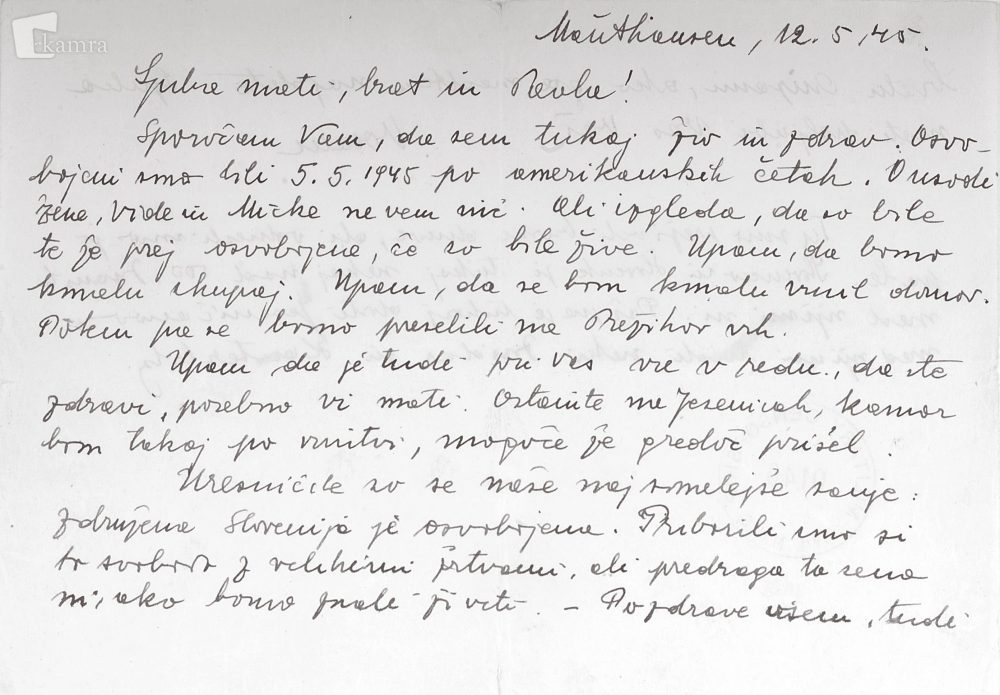 kamra
Mauthausen, 12. 5. 45.
Ljuba mati, brat in Pavla!
Sporočam Vam, da sem tukaj živ in zdrav. Osvo-
bojeni smo bili 5. 5. 1945 po amerikanskih četah. O usodi
žene, Vide in Micke ne vem nič. Ali izgleda, da so bile
te že prej osvobojene, če so bile žive. Upam, da bomo
kmalu skupaj. Upam, da se bom kmalu vrnil domov.
Potem pa se bomo preselili na Prežihov vrh.
Upam da je tudi pri vas vse v redu, da ste
zdravi, posebno vi mati. Ostanite na Jesenicah, kamor
bom takoj po vrnitvi, mogoče že gredoč prišel.
Uresničile so se naše najsmelejše sanje:
združena Slovenija je osvobojena. Priborili smo si
to svobodo z velikimi žrtvami, ali predraga ta cena
ni, ako bomo znali živeti. – Pozdrave vsem, tudi